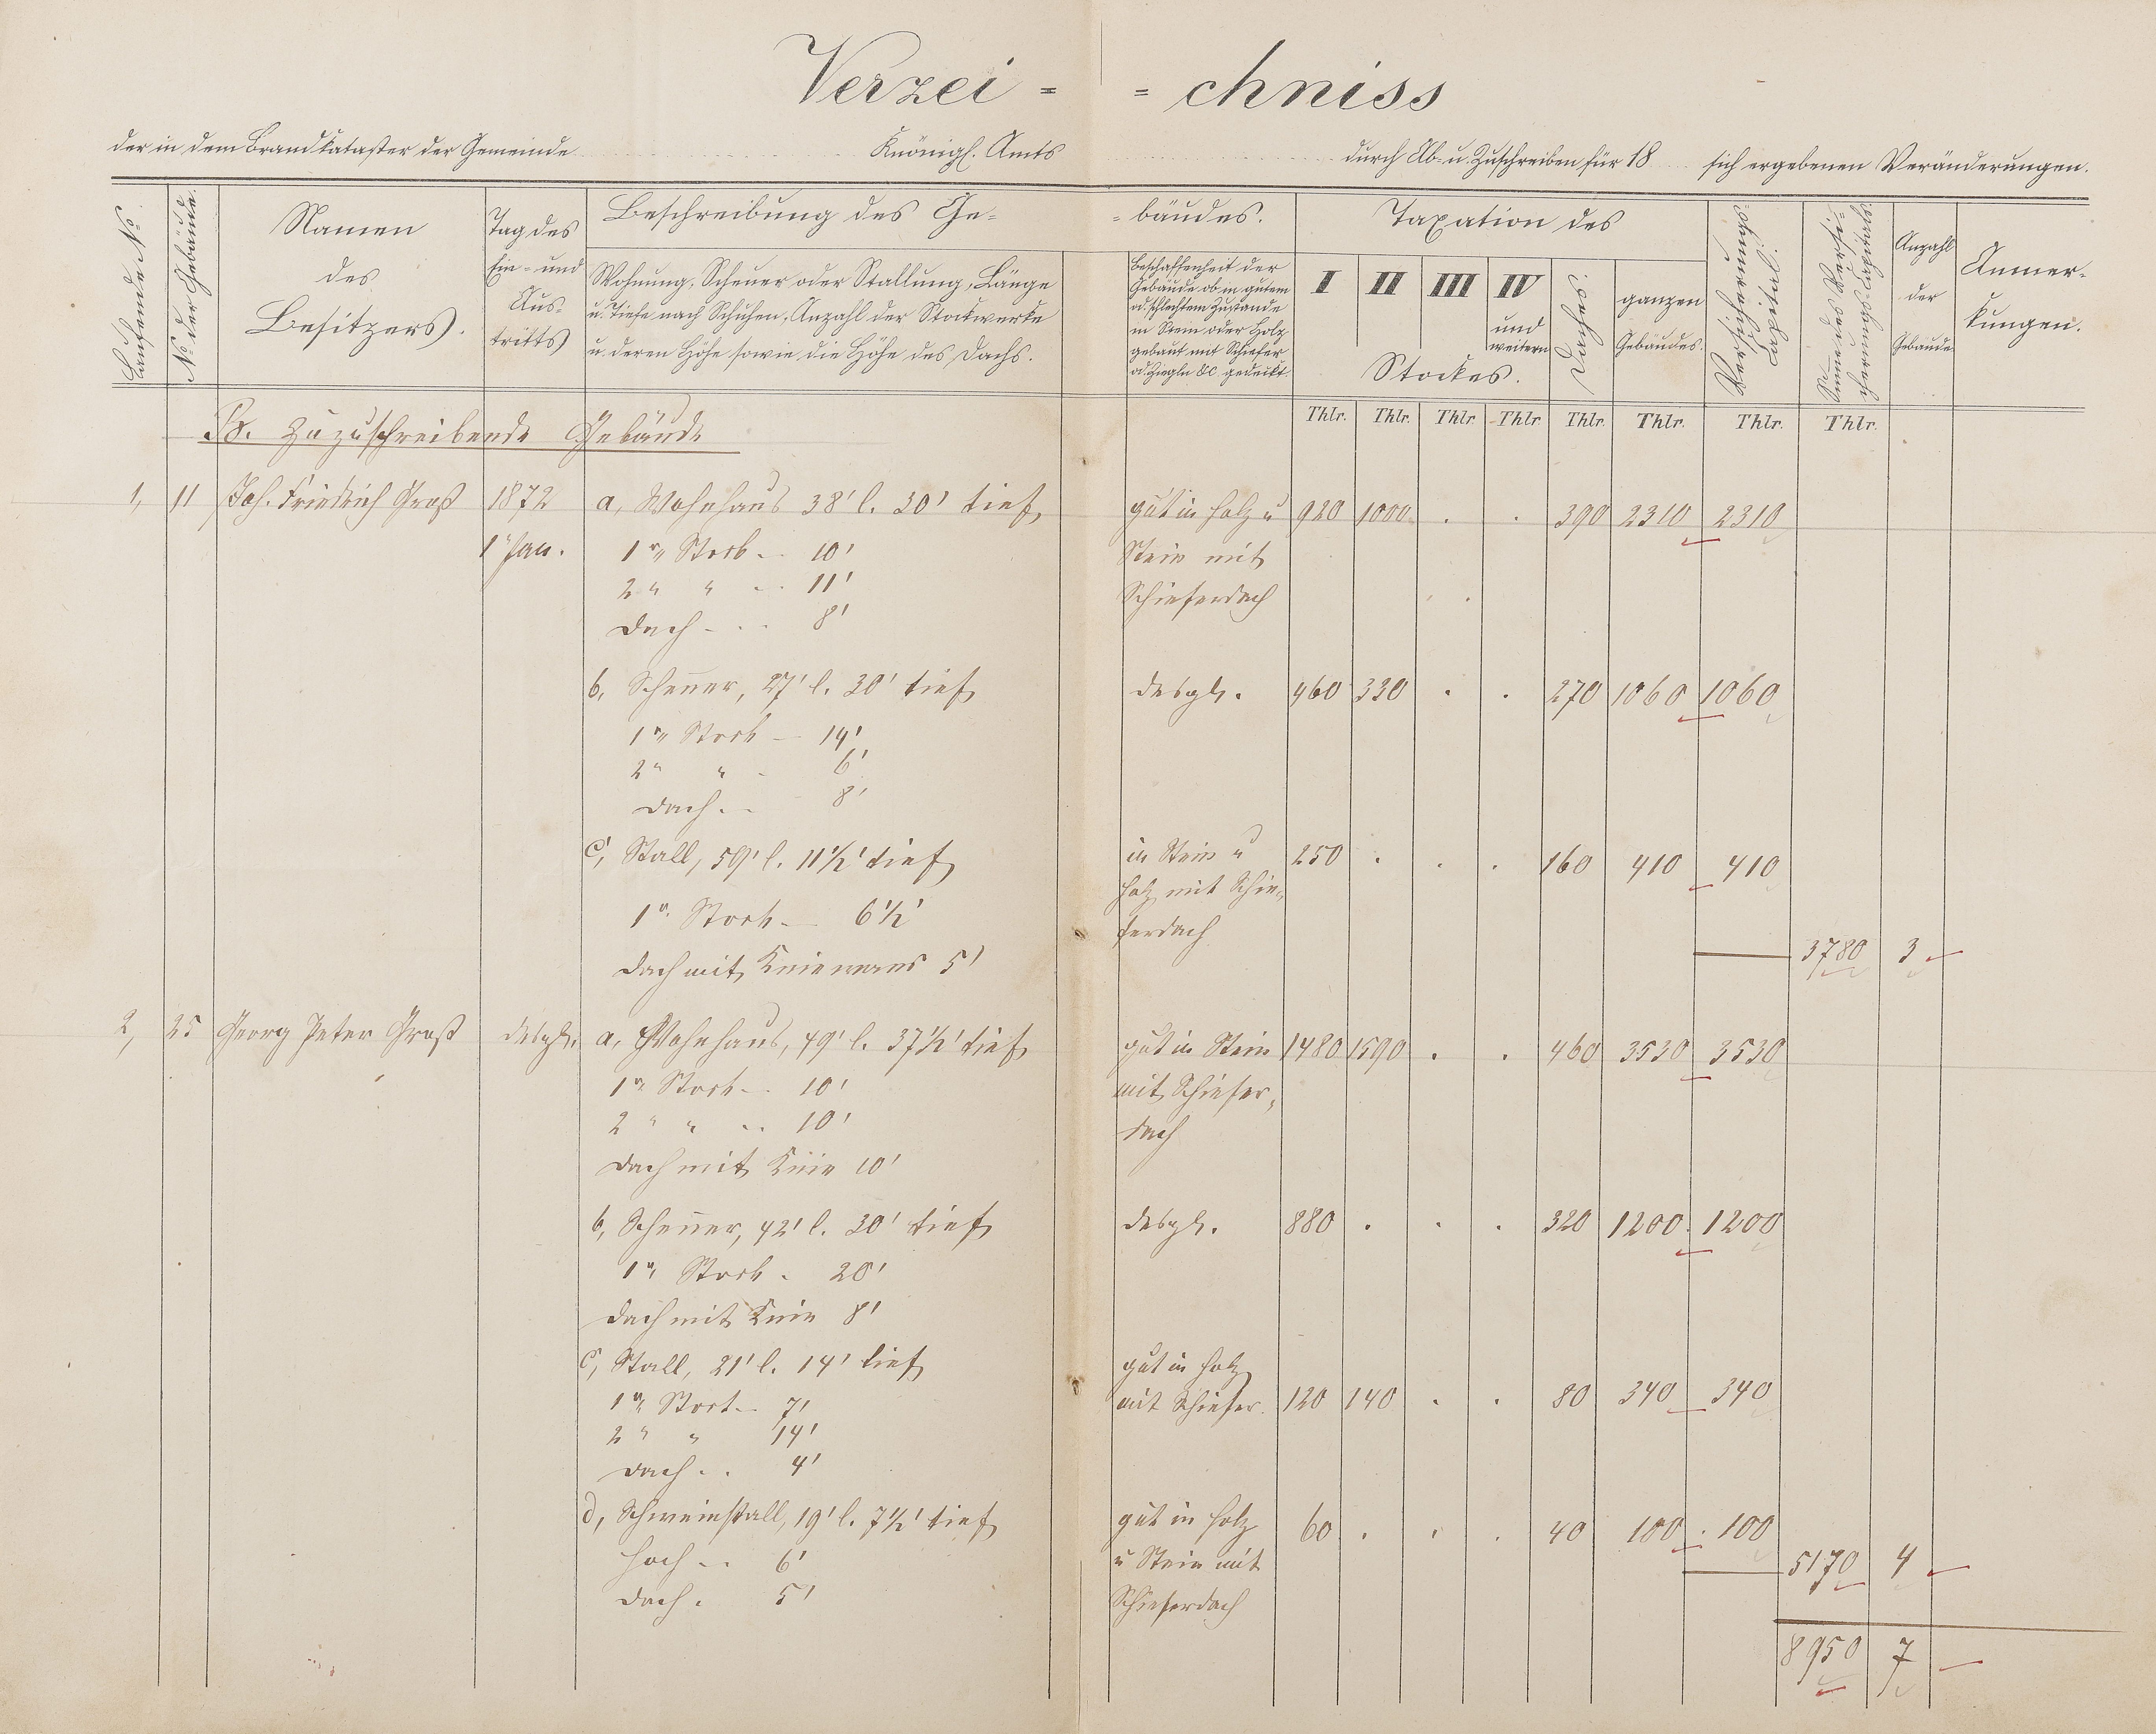 Verzei = = chniss
der in dem Brandkataster der Gemeinde Königl. Amts durch Ab- u. Zuschreiben für 18 sich ergebenen Veränderungen.
Laufende No.
No. der Gebäude.
Namen
des
Besitzers.
Tag des
Ein- und
Aus-
tritts
Beschreibung des Ge- -bäudes.
Wohnung, Scheuer oder Stallung, Länge
u. Tiefe nach Schuhen, Anzahl der Stockwerke
u. deren Höhe sowie die Höhe des Dachs.
Beschaffenheit der
Gebäude ob in gutem
od. schlechtem Zustande
in Stein oder Holz
gebaut mit Schiefer
od. Ziegln &c. gedeckt.
Taxation des
I II III IV
und
weitern
Stockes.
Daches.
ganzen
Gebäudes.
Versicherungs-
Capital.
Summe des Versi-
cherungs-Capitals.
Anzahl
der
Gebäude
Anmer-
kungen.
Thlr. Thlr. Thlr. Thlr. Thlr. Thlr. Thlr. Thlr.
B. Zuzuschreibende Gebäude
1, 11 Joh. Friedrich Groß 1872 a, Wohnhaus 38' l. 30' tief gut in Holz u 920 1000 . . 390 2310 2310
1 Jan. 1r Stock - 10' Stein mit
2 " " - 11' Schieferdach
Dach - - 8'
b, Scheuer, 27' l. 30' tief desgl. 460 330 . . 270 1060 1060
1r Stock - 14'
2 " " - 6'
Dach - - 8'
c, Stall, 59' l. 11½' tief in Stein u 250 . . . 160 410 410
Holz mit Schie-
1r Stock - 6½' ferdach
3780 3
Dach mit 5'
2, 25 Georg Peter Groß desgl. a, Wohnhaus, 49' l. 37½' tief gut in Stein 1480 1590 . . 460 3530 3530
1r Stock - 10' mit Schiefer-
2 " " - 10' dach
Dach mit Knie 10'
b, Scheuer, 42' l. 30' tief desgl. 880 . . . 320 1200 1200
1r Stock - 20'
Dach mit Knie 8'
c, Stall, 21' l. 14' tief gut in Holz
1r Stock - 7' mit Schiefer. 120 140 . . 80 340 340
2 " " 14'
Dach . . 4'
d, Schweinstall, 19' l. 7½' tief gut in Holz 60 . . . 40 100 100
hoch - - 6' u Stein mit 5170 4
Dach . 5' Schieferdach
8950 7